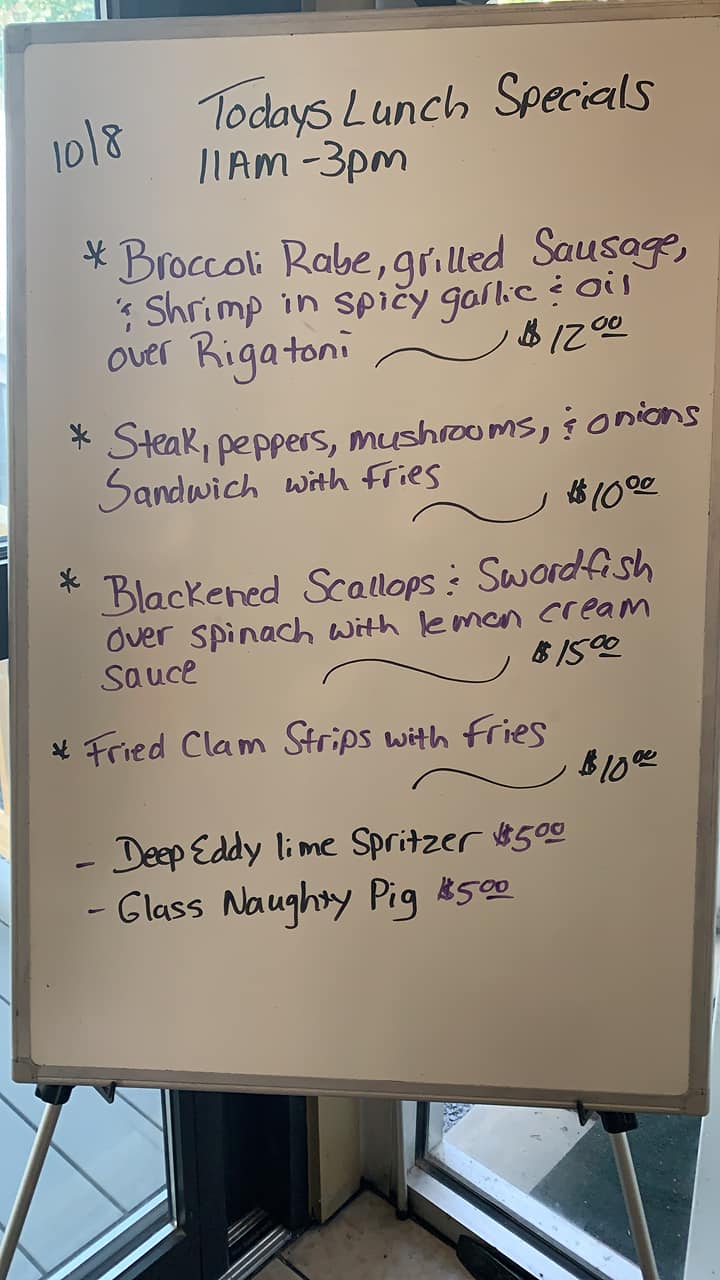 10/8
Todays Lunch Specials
11AM-3pm
* Broccoli Rabe, grilled Sausage,
& Shrimp in spicy garlic & oil
over Rigatoni $12.00
* Steak, peppers, mushrooms, & onions
Sandwich with fries $10.00
* Blackened Scallops & Swordfish
over spinach with lemon cream
sauce $15.00
* Fried Clam Strips with fries
$10.00
- Deep Eddy lime Spritzer $5.00
- Glass Naughty Pig $5.00